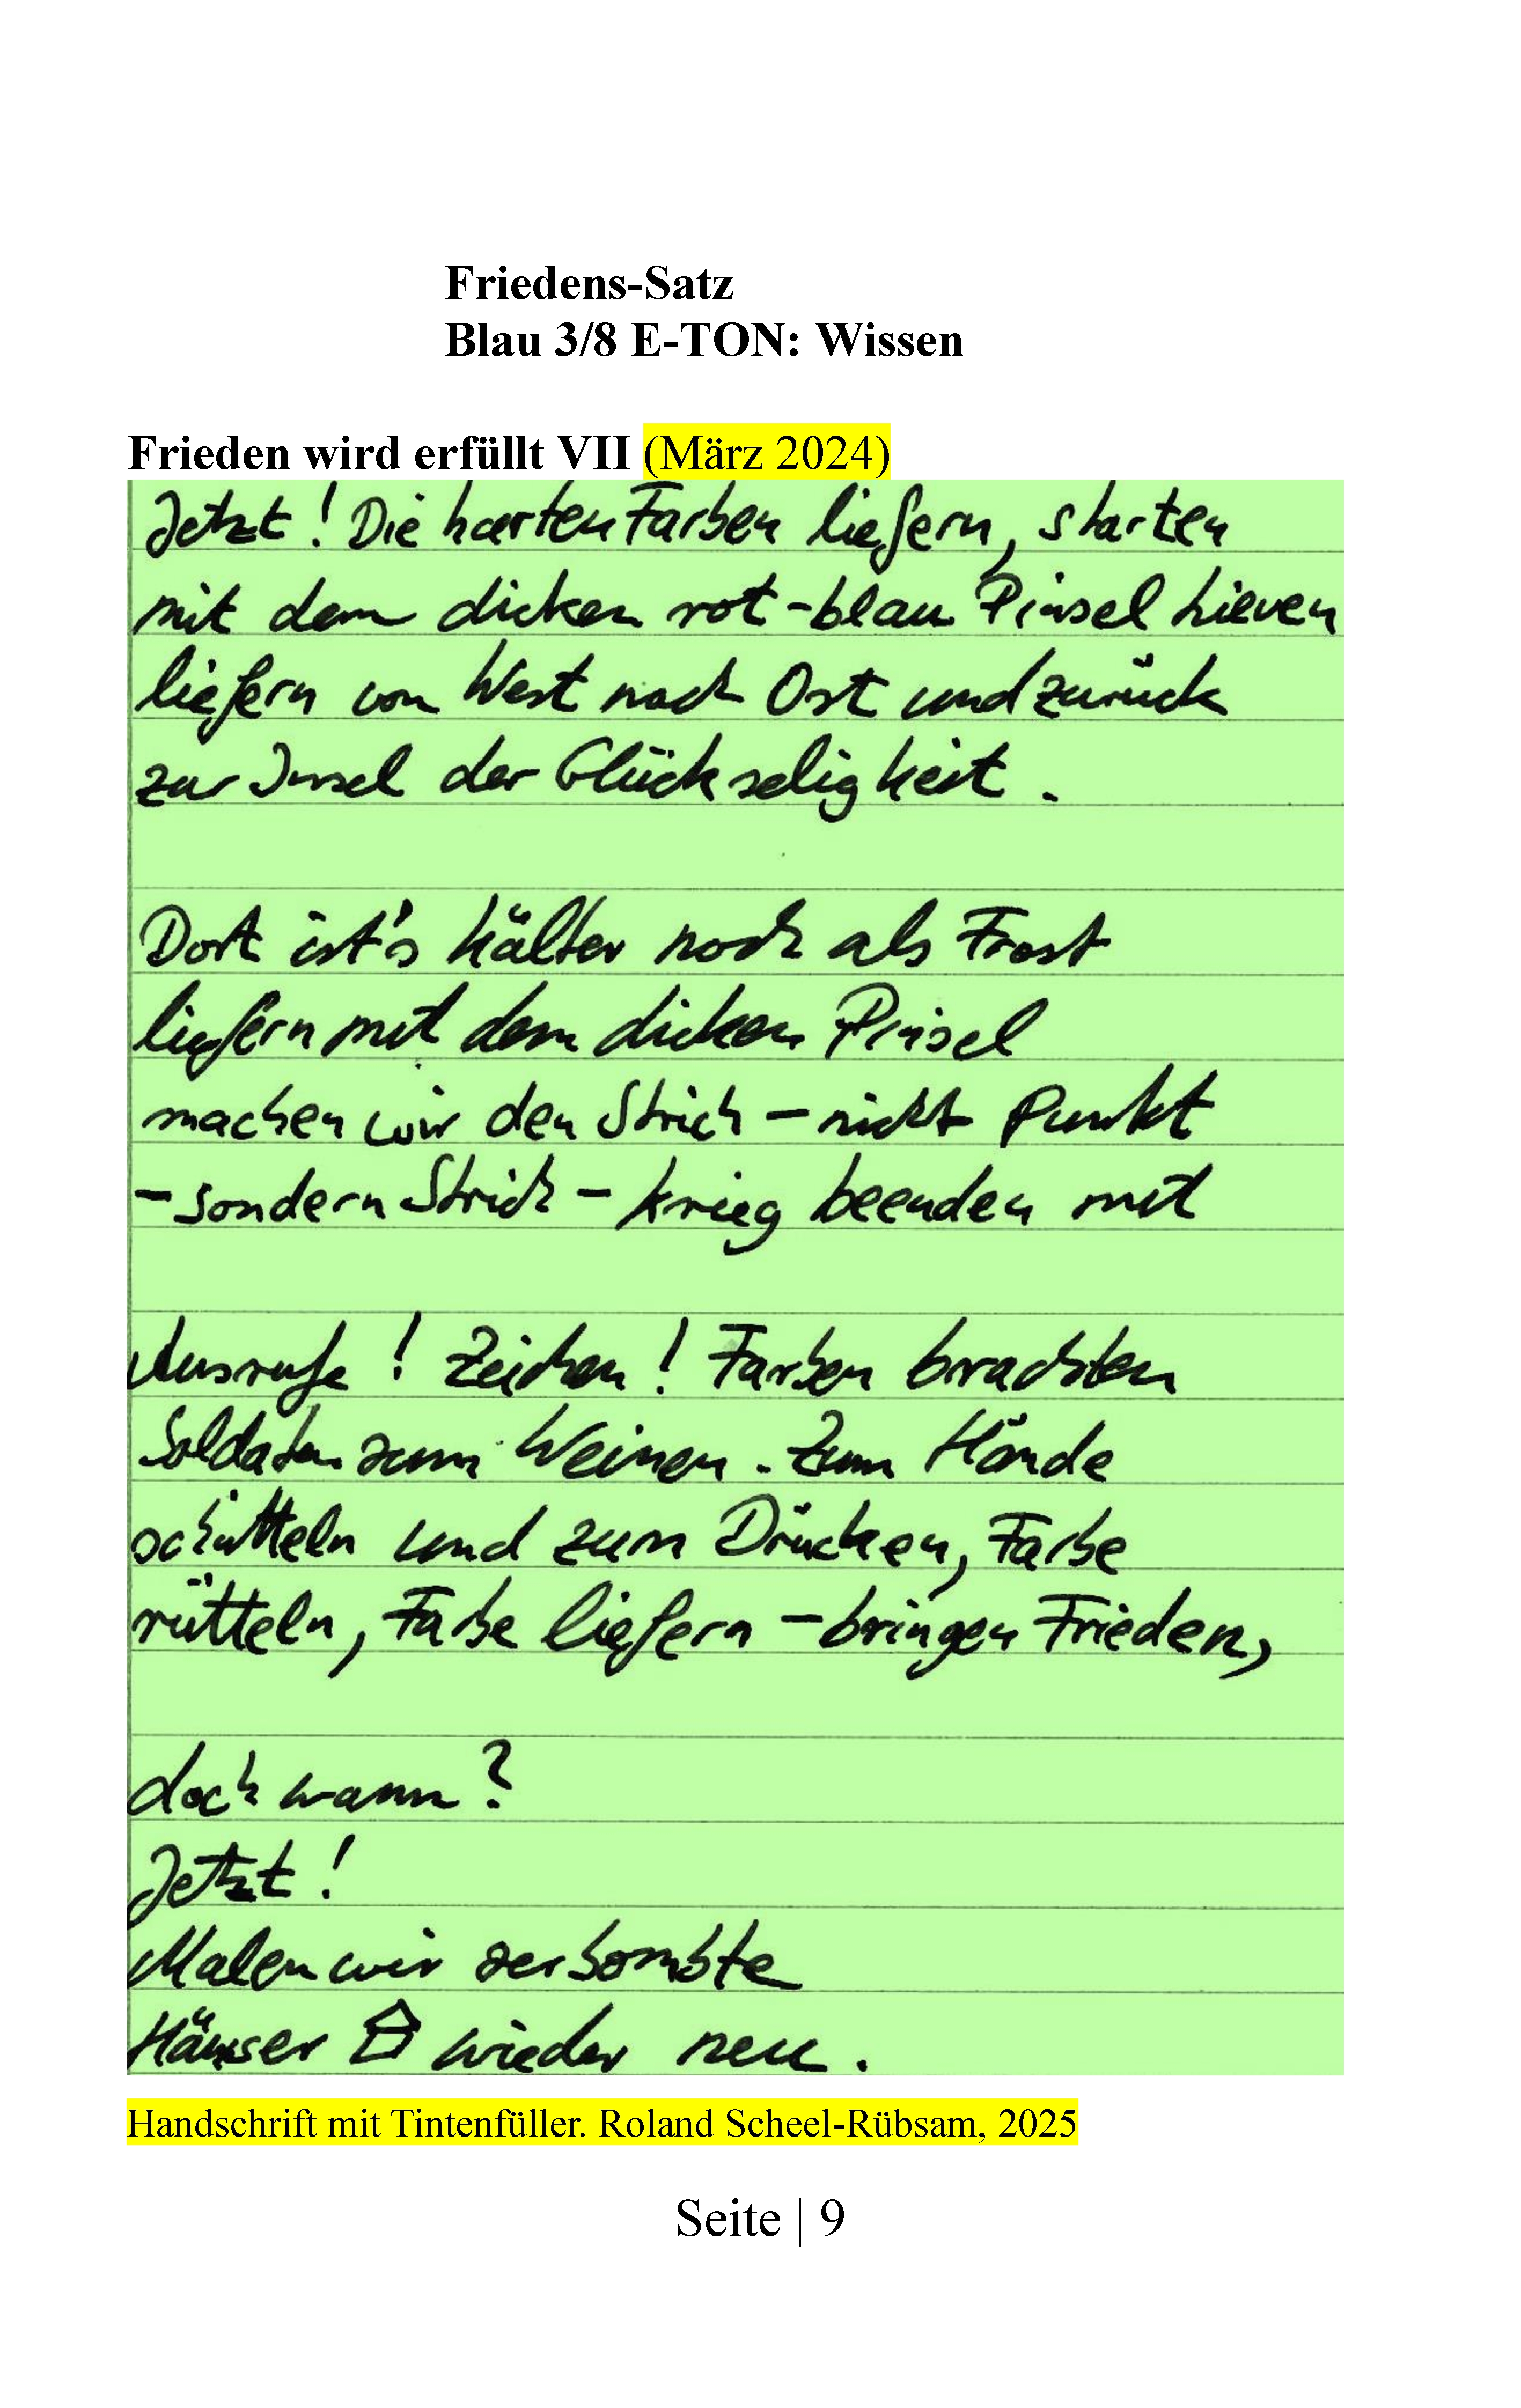 Friedens-Satz
Blau 3/8 E-TON: Wissen
Frieden wird erfüllt VII (März 2024)
Jetzt! Die harten Farben liefern, starten
mit dem dicken rot-blau Pinsel hieven
liefern von West nach Ost und zurück
zur Insel der Glückseligkeit.
Dort ist's kälter noch als Frost
liefern mit dem dicken Pinsel
machen wir den Strich - nicht Punkt
- sondern Strich - Krieg beenden mit
Ausrufe! Zeichen! Farben brachten
Soldaten zum Weinen. Zum Hände
schütteln und zum Drücken, Farbe
rütteln, Farbe liefern - bringen Frieden,
doch wann?
Jetzt!
Malen wir zerbombte
Häuser wieder neu.
Handschrift mit Tintenfüller. Roland Scheel-Rübsam, 2025
Seite | 9